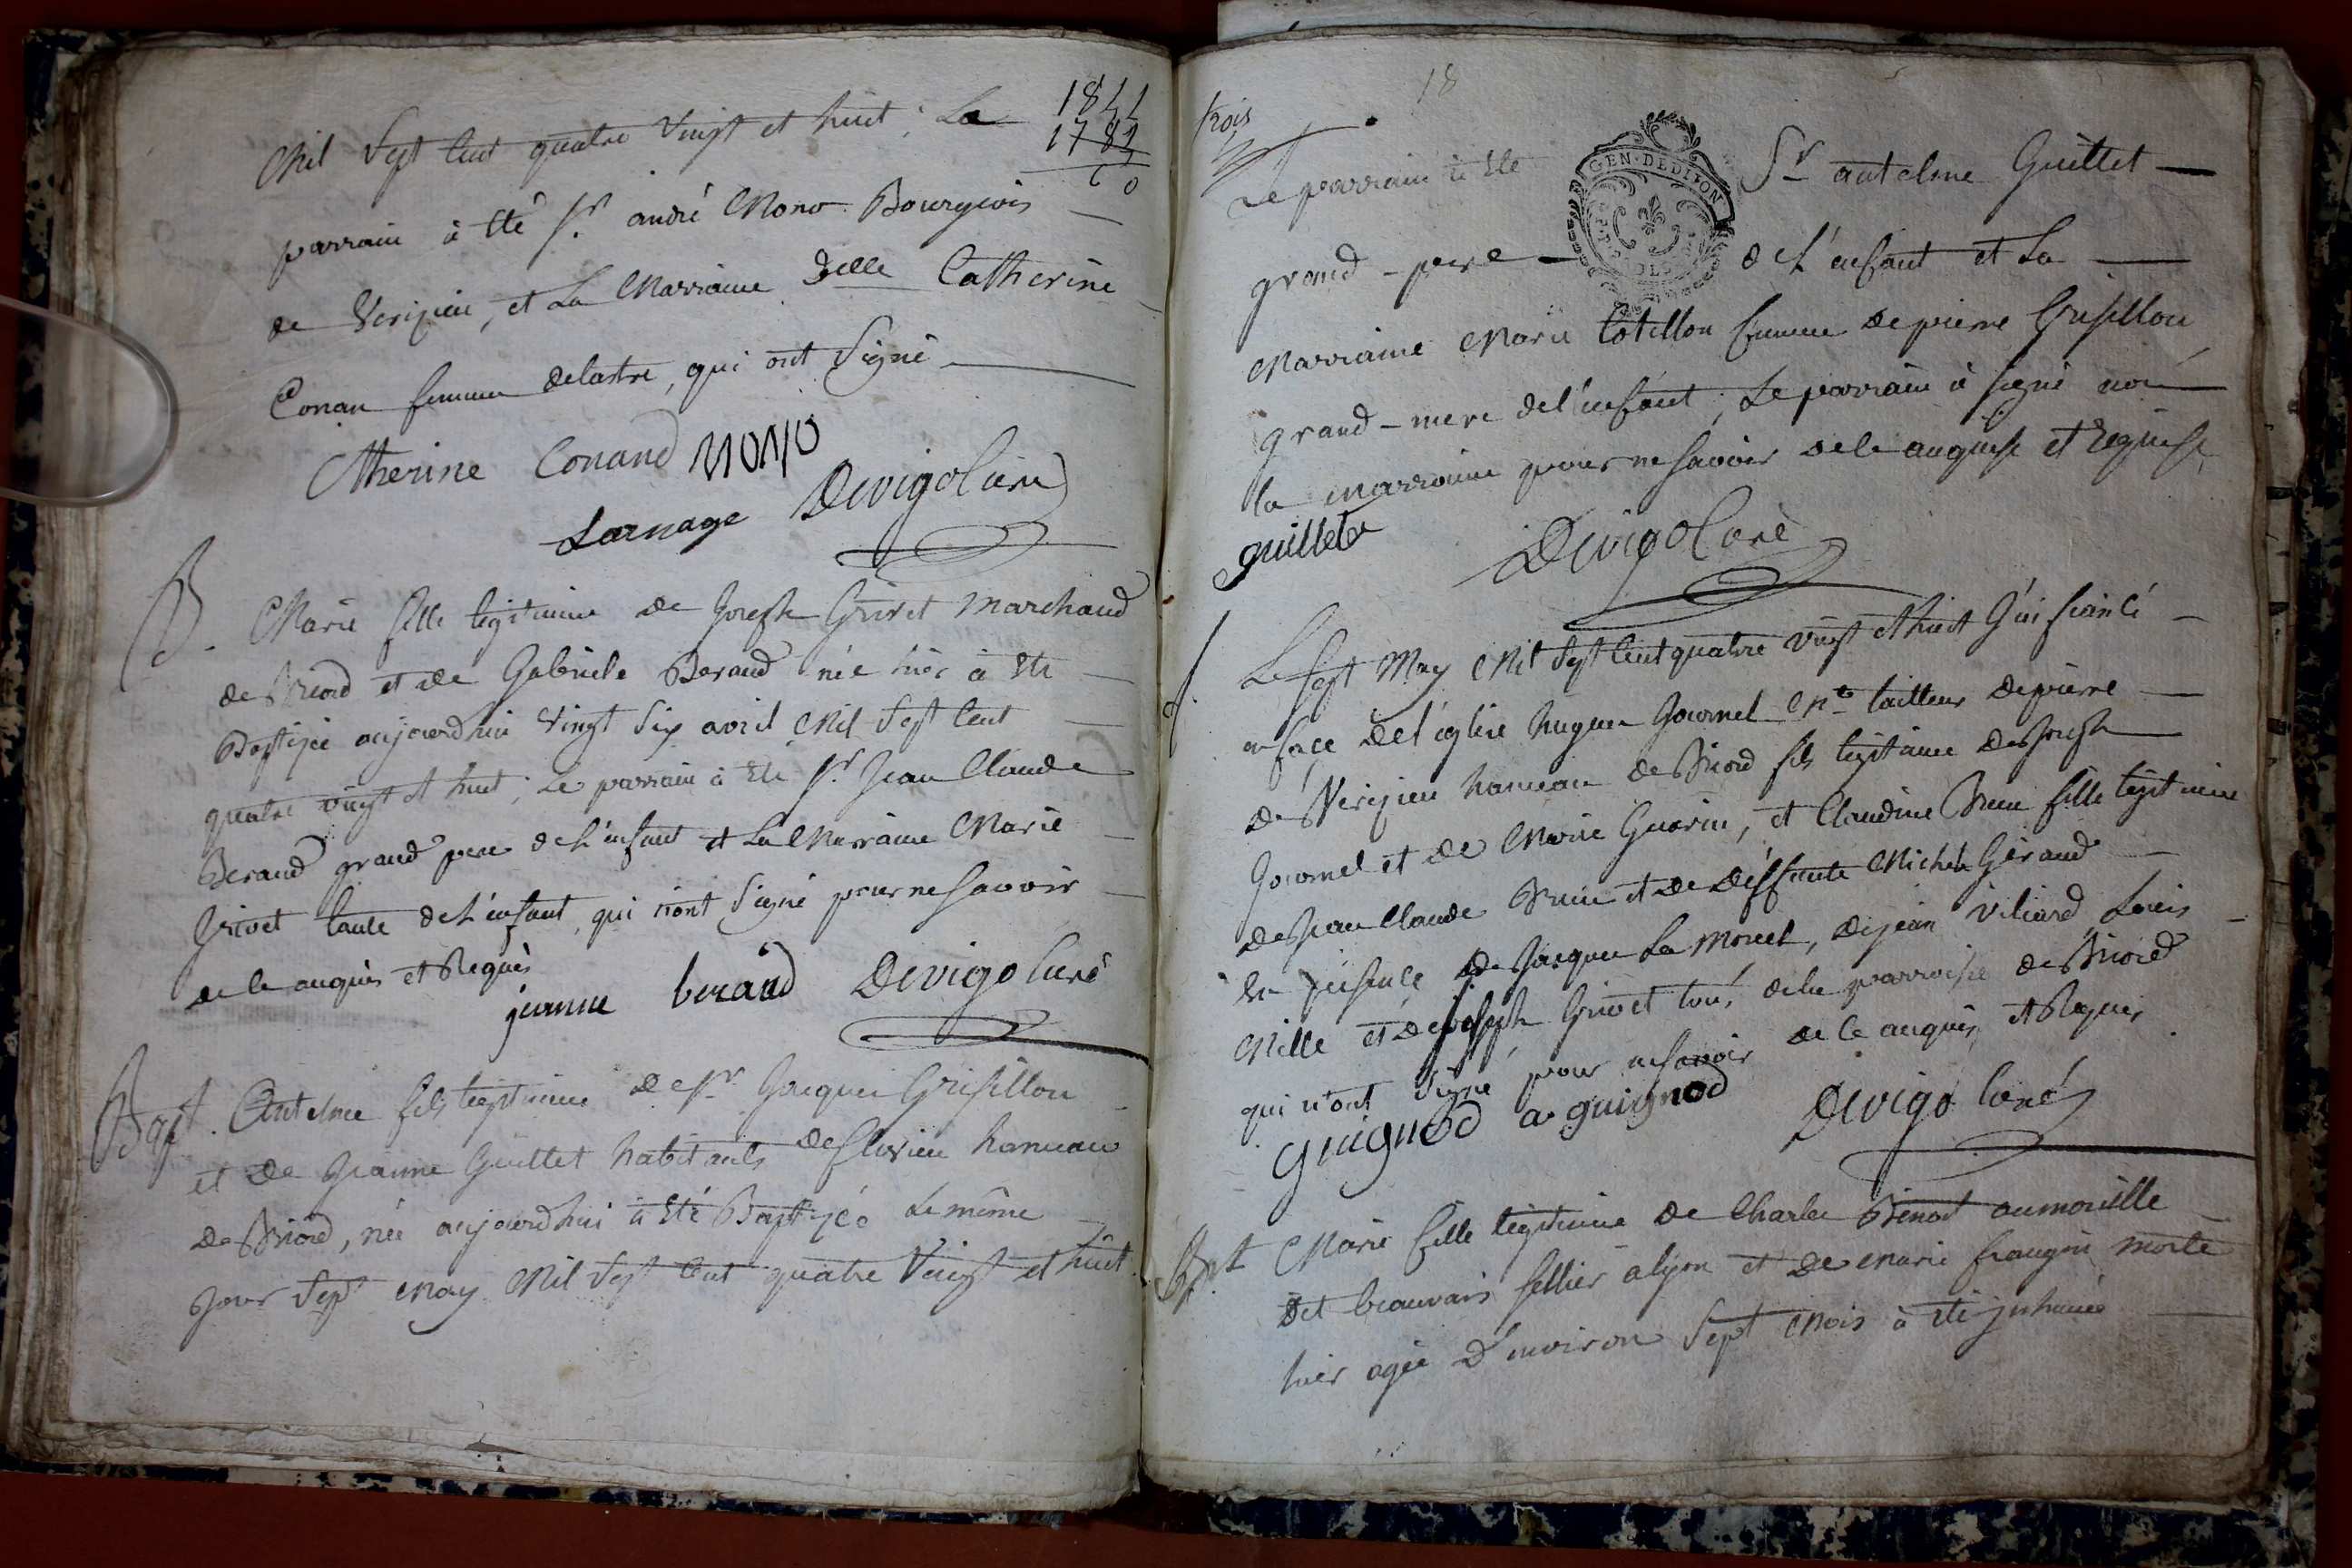 Mil Sept Cent quatre vingt et huit ; Le
1841
1781
60
parrain à été Sr. andré Mono Bourgeois
de Verizieu, et La Marraine Delle Catherine
Conan femme delastre, qui ont Signé
Ctherine Conand MONO
Larnage Devigo Curé
B.
Marie fille legitime de Joseph Grivet Marchand
de Briord et de Gabriele Beraud née hier à été
Baptizée aujourdhui vingt Six avril Mil Sept Cent
quatre vingt et huit ; Le parrain à été Sr. Jean Claude
Beraud grand pere de L'enfant et La Marraine Marie
Grivet tante de L'enfant, qui n'ont Signé pour ne Savoir
de le anquis et Requis
jeanne beraud Devigo Curé
Bapt. Antelme fils legitime de Sr. Jacques Grisillon
et de Jeanne Guillet habitants de Flevieu hameau
de Briord, née aujourdhui à été Baptizéé Le même
Jour Sept May Mil Sept Cent quatre Vingt et huit.
trois
18
Le parrain à été Sr. antelme Guillet
GEN. DE DIJON
grand-pere de L'enfant et La
Marraine Marie Cotillon femme de pierre Grisillon
grand-mere de l'enfant ; Le parrain à signé non
la marraine pour ne savoir de le anquise et requise
guillet Devigo Curé
Le Sept May Mil Sept Cent quatre vingt et huit J'ai fiancé
en face de l'église hugues Journel Me tailleur de pierre
de Verizieu hameau de Briord fils legitime de Joseph
Journel et de Marie Guerin, et Claudine Brun fille legitime
de Jean Claude Brun et de Deffunte Michele Géraud
En presence de Jacques La Morel, de jean viliard Louis
Mille et de joseph Grivet tous de la parroisse de Briord
qui n'ont Signé pour ne savoir de le anquis et Requis
guignod a guignod Devigo Curé
Marie fille legitime de Charles Benoit aumonille
Dit beauvais sellier a lyon et de marie frangin morte
hier agée D'environ Sept Mois à été inhumée